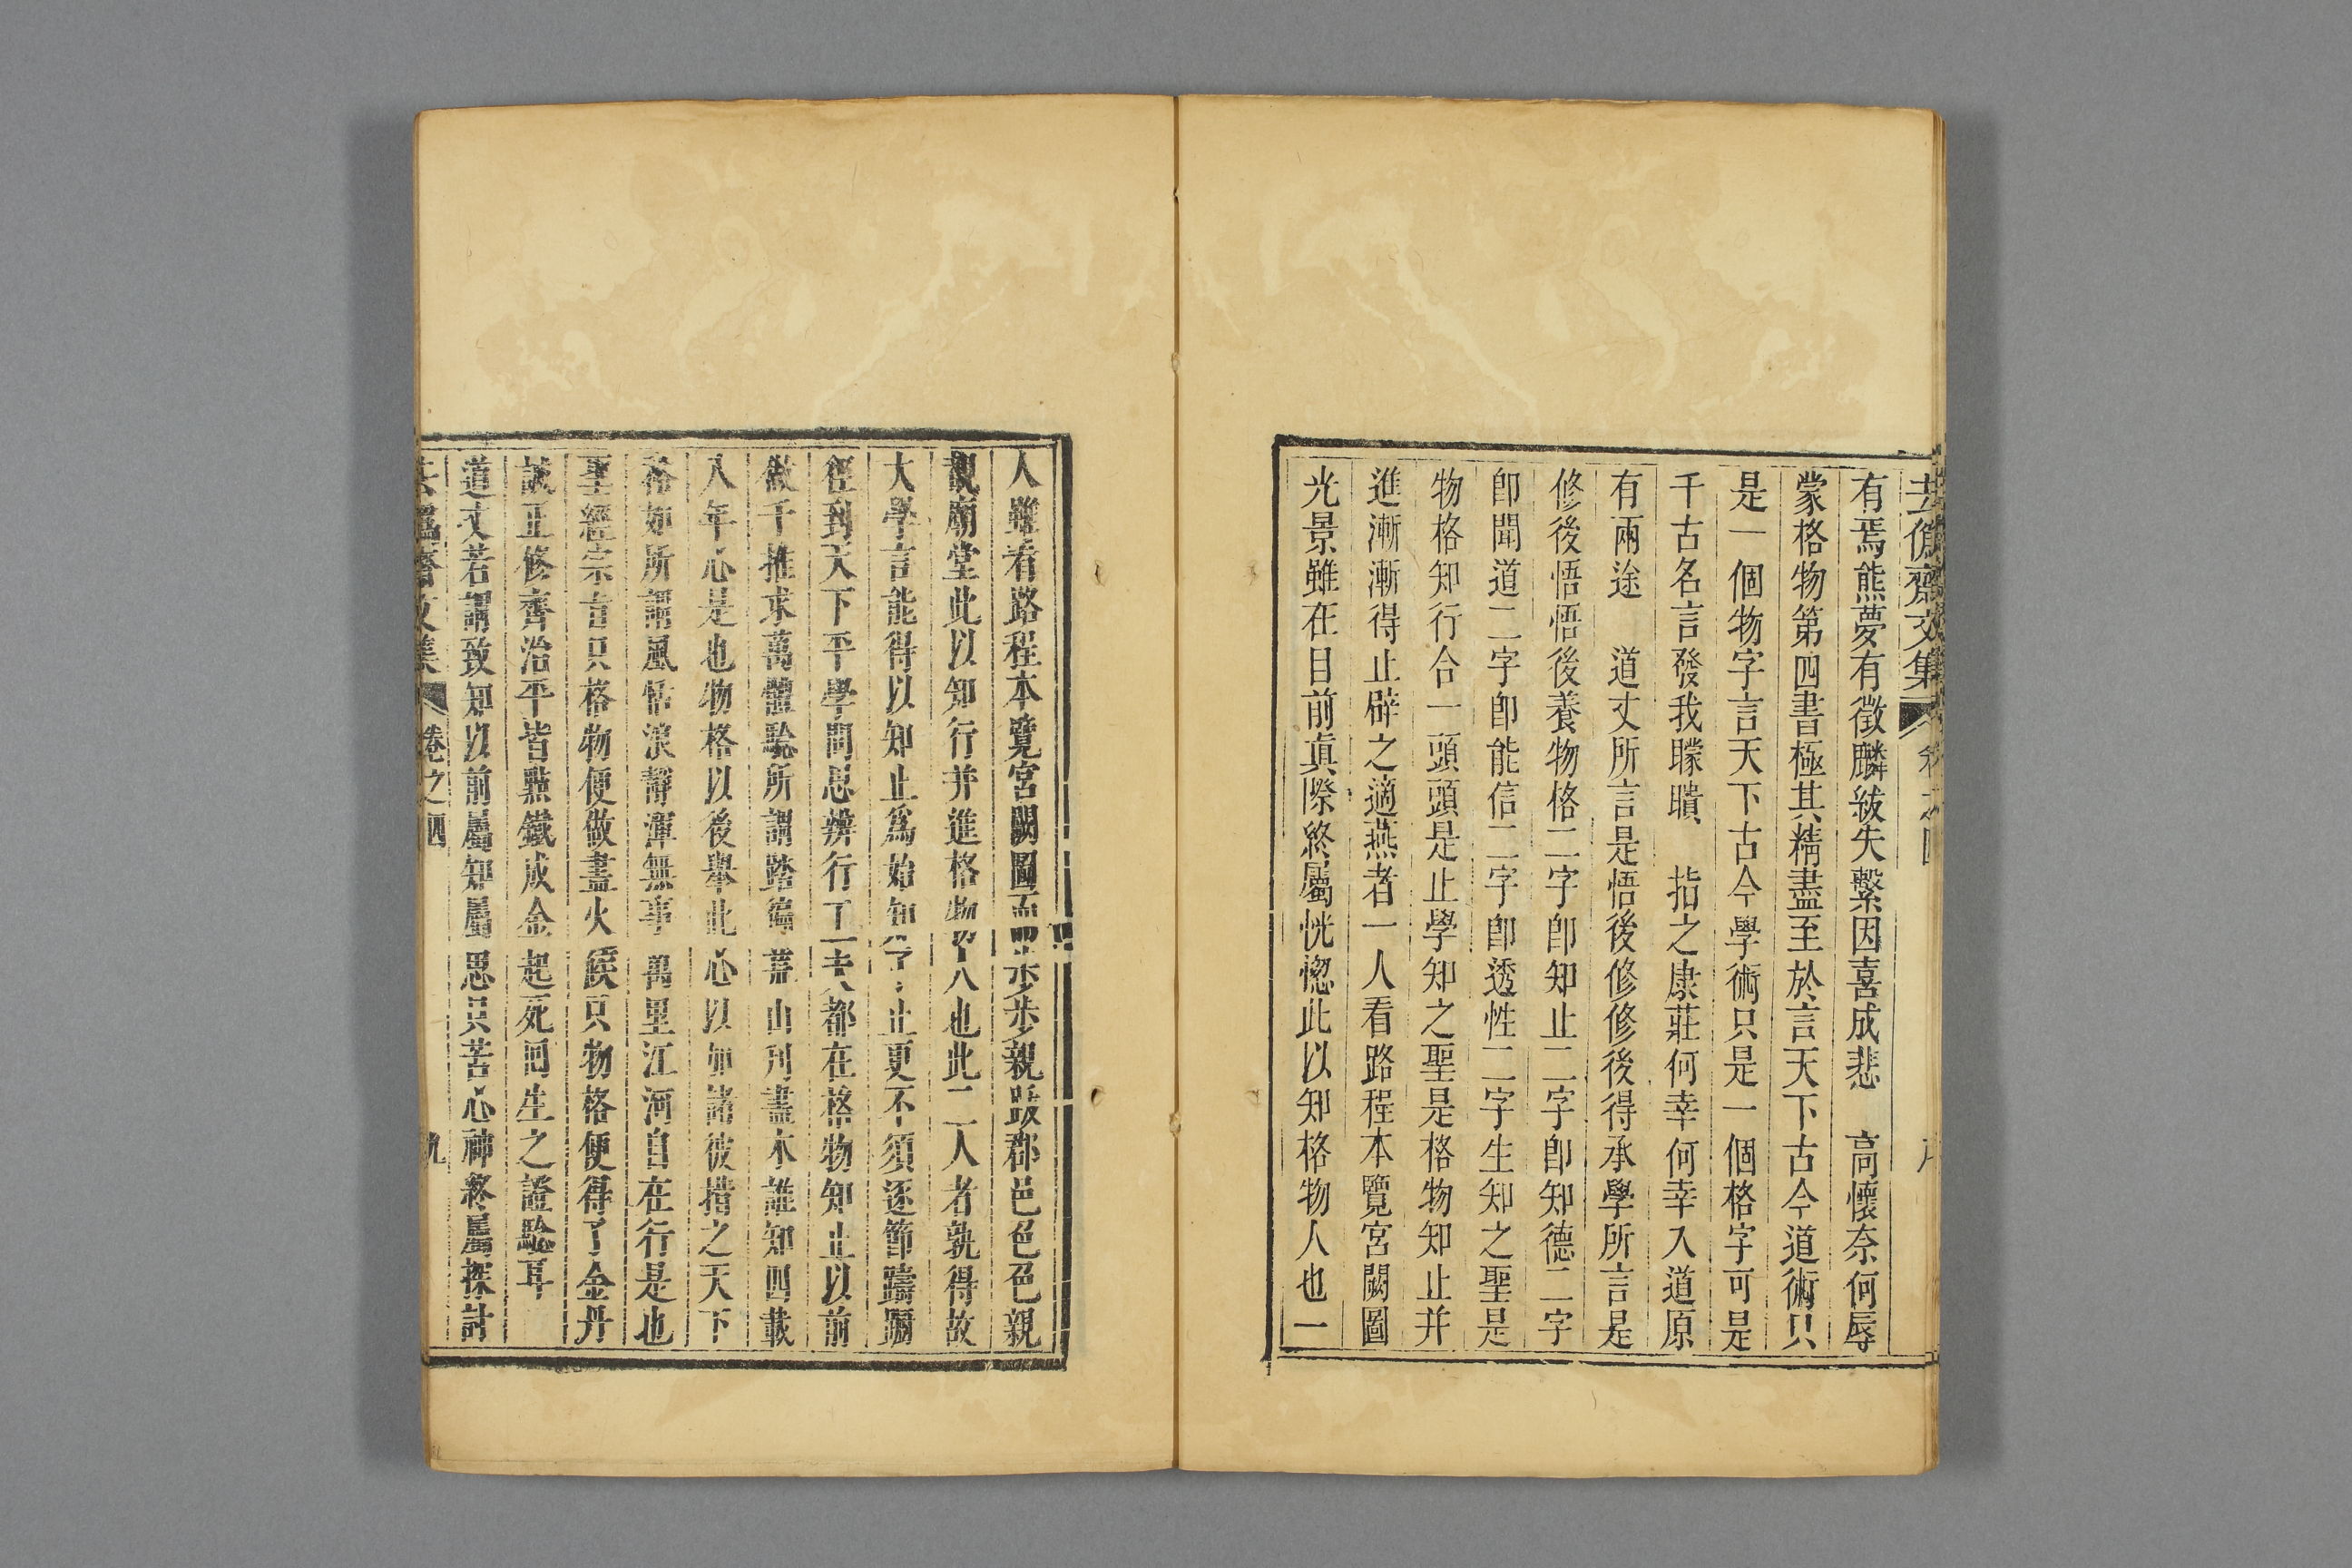 去僞齋文集 卷之四
有焉熊夢有徵麟紱失繫因喜成悲 高懷奈何辱
蒙格物第四書極其精盡至於言天下古今道術只
是一個物字言天下古今學術只是一個格字可是
千古名言發我矇瞶 指之康莊何幸何幸入道原
有兩途 道丈所言是悟後修修後得承學所言是
修後悟悟後養物格二字卽知止二字卽知德二字
卽聞道二字卽能信二字卽透性二字生知之聖是
物格知行合一頭頭是止學知之聖是格物知止并
進漸漸得止辟之適燕者一人看路程本覽宮闕圖
光景雖在目前眞際終屬恍惚此以知格物人也一
人雖看路程本覽宮闕圖而步步親跋郡邑色色親
覩廟堂此以知行并進格物人也此二人者孰得故
大學言能得以知止爲始知止更不須逐節躊躕
徑到天下平學問思辨行工夫都在格物知止以前
做千推求萬體驗所謂踏徧葊山刋盡木誰知四載
八年心是也物格以後舉此心以加諸彼措之天下
裕如所謂風恬浪靜渾無事萬里江河自在行是也
聖經宗吉只格物便做盡火候只物格便得了金丹
誠正修齊治平皆點鐵成金起死回生之證驗耳
道丈若謂致知以前屬知屬思只苦心神終屬探討
去僞齋文集 卷之四 九